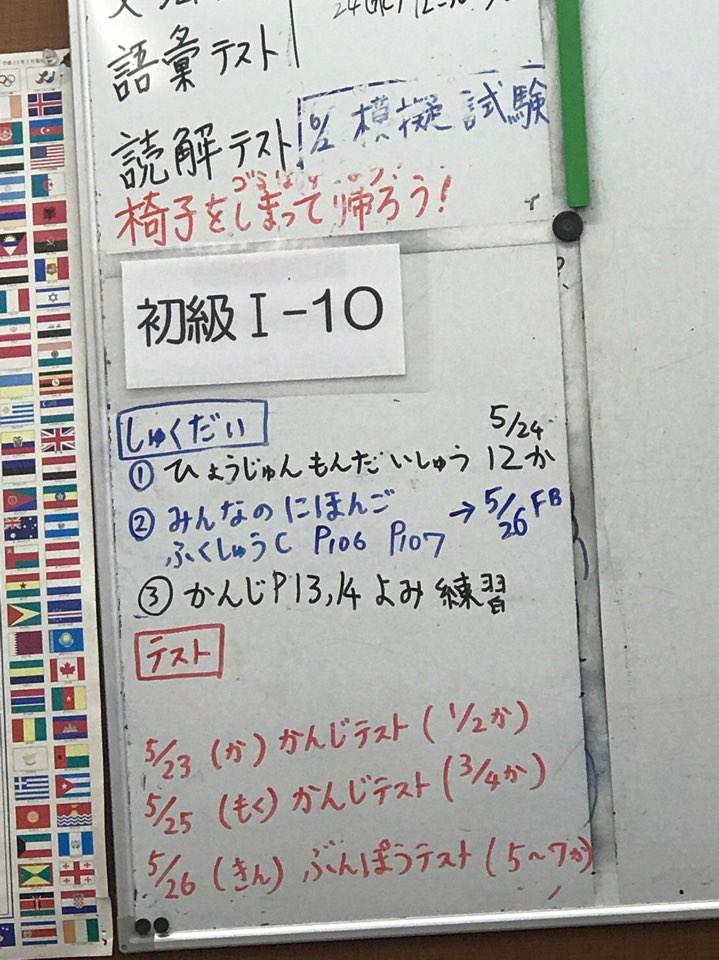 語彙テスト
読解テスト
6/2 模擬試験
椅子をしまって帰ろう!
初級Ⅰ-10
しゅくだい
5/24
① ひょうじゅんもんだいしゅう 12か
② みんなのにほんご → 5/26 FB
ふくしゅうC P106 P107
③ かんじP13,14 よみ 練習
テスト
5/23 (か) かんじテスト (1/2か)
5/25 (もく) かんじテスト (3/4か)
5/26 (きん) ぶんぽうテスト (5~7か)